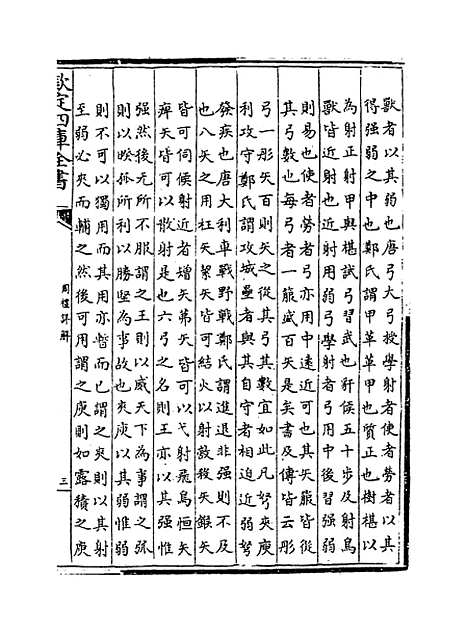 獸者以其弱也唐弓大弓授學射者使者勞者以其
得强弱之中也鄭氏謂甲革革甲也質正也樹椹以
為射正射甲與椹試弓習武也豻侯五十步及射鳥
獸皆近射也近射用弱弓學射者弓用中後習强弱
則易也使者勞者弓亦用中遠近可也其矢箙皆從
其弓數也每弓者一箙盛百矢是矣書及傳皆云彤
弓一彤矢百則矢之從其弓其數宜如此凡弩夾庾
利攻守鄭氏謂攻城壘者與其自守者相迫近弱弩
發疾也唐大利車戰野戰鄭氏謂進退非强則不及
也八矢之用枉矢絜矢皆可結火以射敵殺矢鍭矢
皆可伺候射近者矰矢茀矢皆可以弋射飛鳥恒矢
痺矢皆可以散射是也六弓之名則王亦以其强惟
强然後无所不服謂之王則以威天下為事謂之弧
則以睽孤所利以勝堅為事故也夾庾以其弱惟弱
則不可以獨用而其用亦暫而已謂之夾則以其射
至弱必夾而輔之然後可用謂之庾則如露積之庾
欽定四庫全書
周禮詳解
三